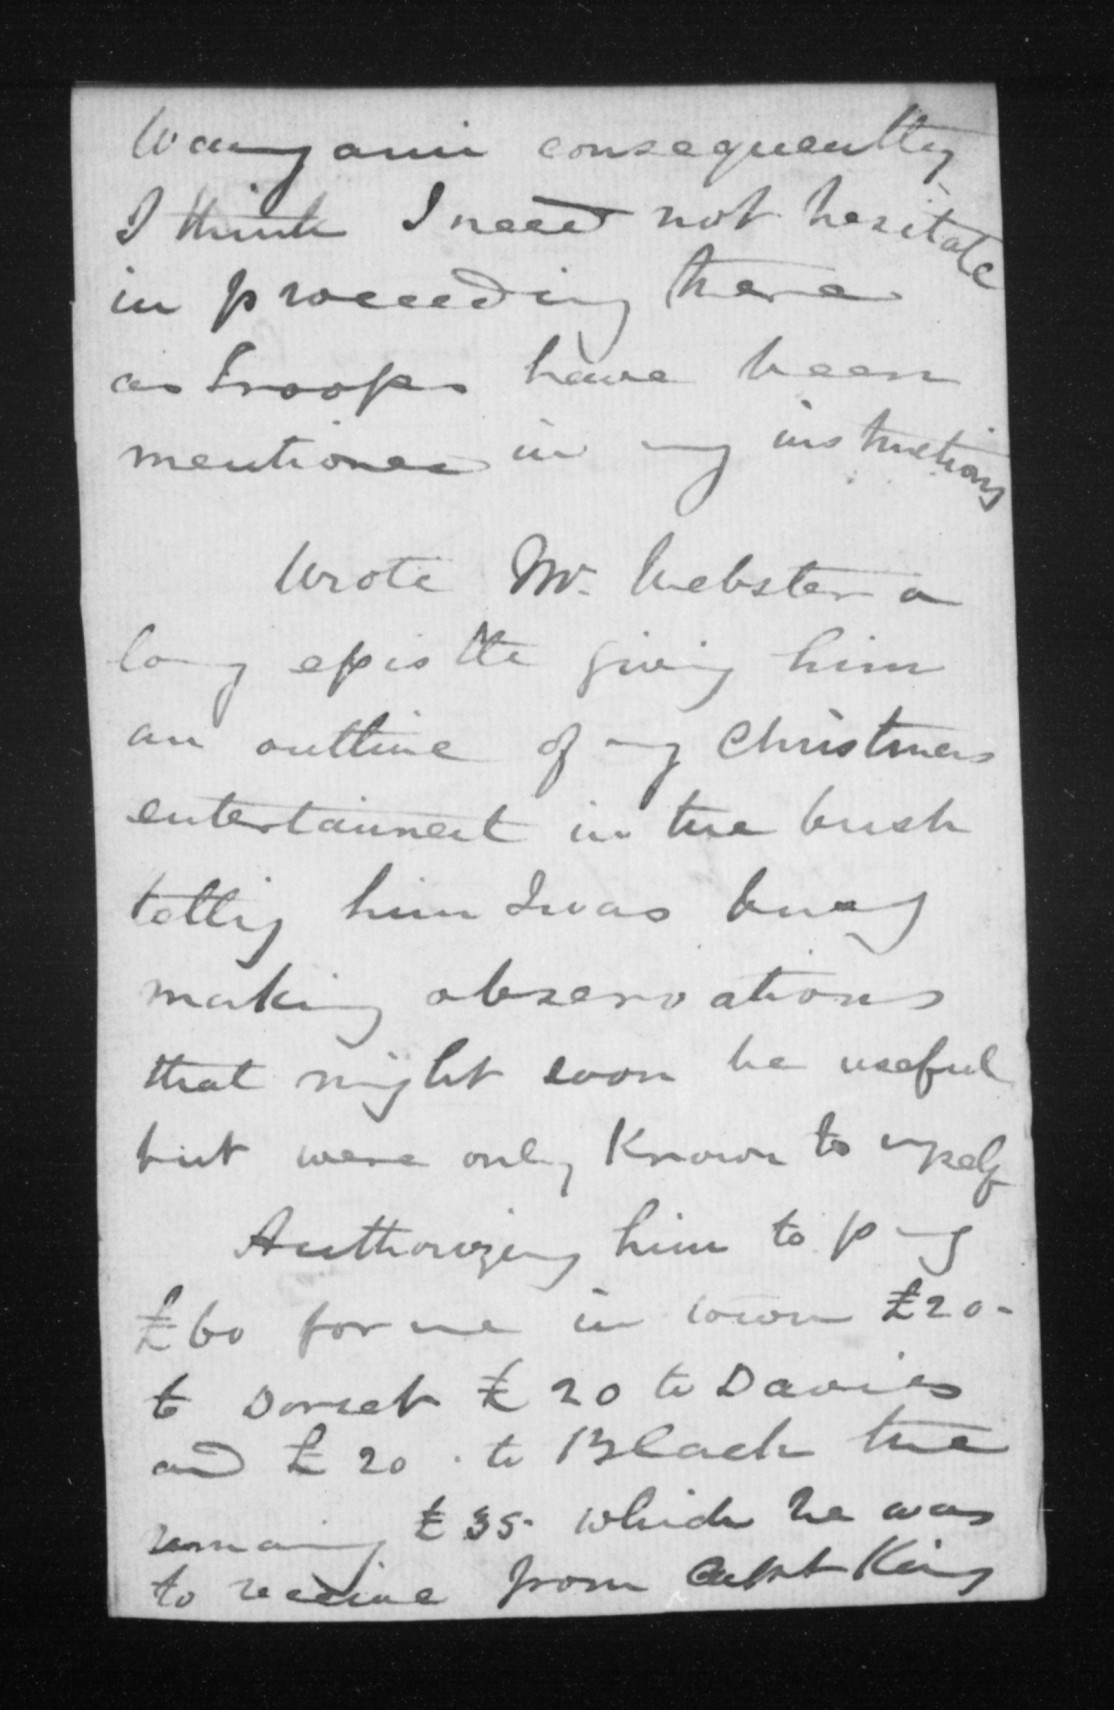 Wanganui consequently
I think I need not hesitate
in proceeding there
as Troops have been
mentioned in my instructions
Wrote Mr. Webster a
long epistle giving him
an outline of my Christmas
entertainment in the bush
telling him I was busy
making observations
that might soon be useful
but were only Known to myself
Authorizing him to pay
£60 for me in town £20-
to Dorset £20 to Davies
and £20 to Black the
remaining £35 which he was
to receive from Capt King